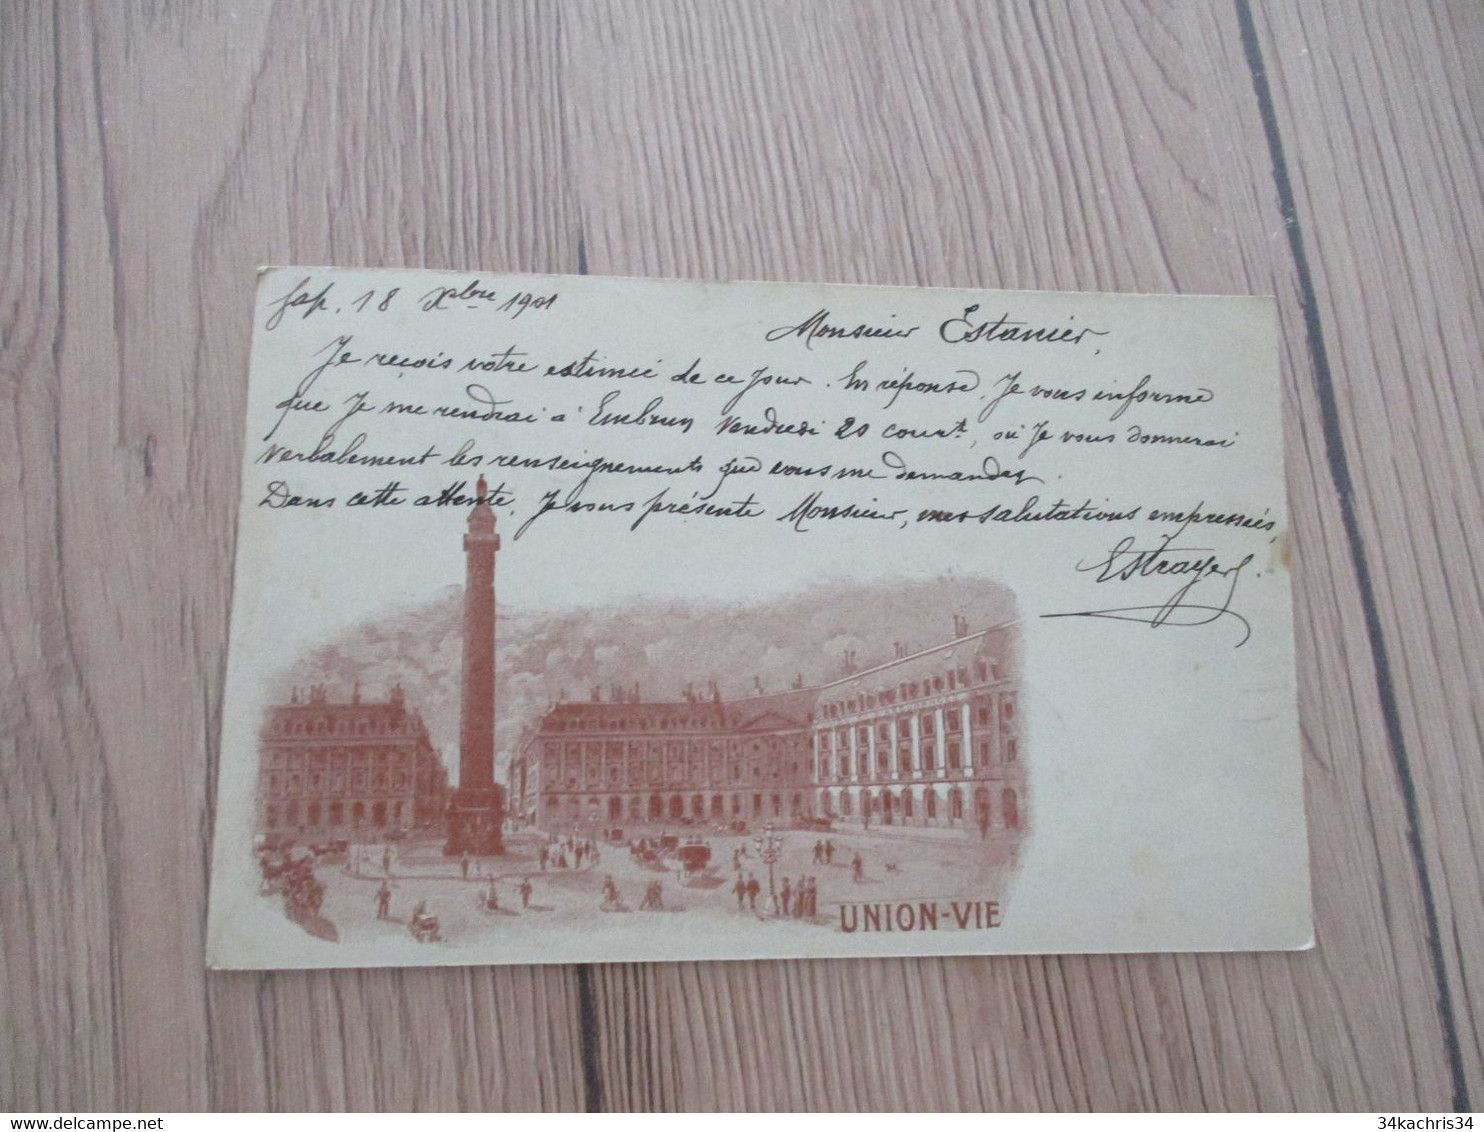 Gap. 18 Xbre 1901
Monsieur Estanier,
Je reçois votre estimée de ce jour. En réponse, Je vous informe
que Je me rendrai à Embrun Vendredi 20 court, où Je vous donnerai
Verbalement les renseignements que vous me demandez.
Dans cette attente, Je vous présente Monsieur, mes salutations empressées,
Estrayer
UNION-VIE
34kachris34
34kachris34